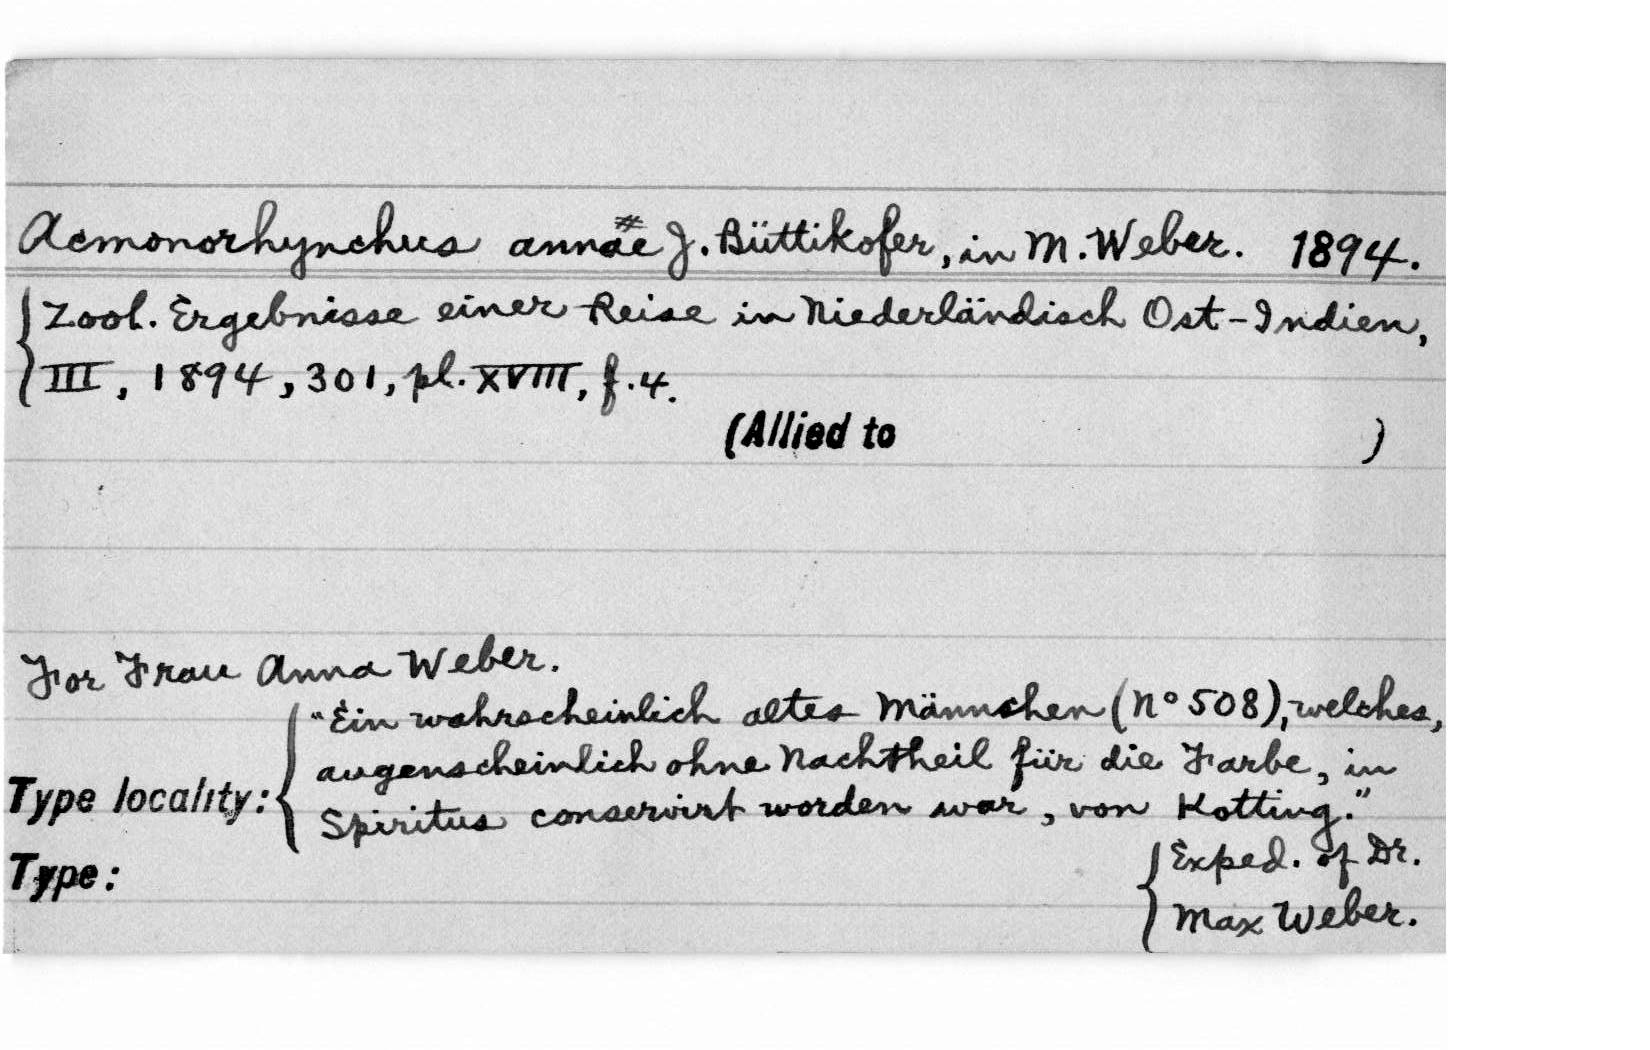 Acmonorhynchus annae J. Büttikofer, in M. Weber. 1894.
Zool. Ergebnisse einer Reise in Niederländisch Ost-Indien,
III, 1894, 301, pl. XVIII, f. 4.
(Allied to )
For Frau Anna Weber.
"Ein wahrscheinlich altes Männchen (No 508), welches,
augenscheinlich ohne Nachtheil für die Farbe, in
Type locality:
Spiritus conservirt worden war, von Kotting."
Type:
Exped. of Dr.
Max Weber.